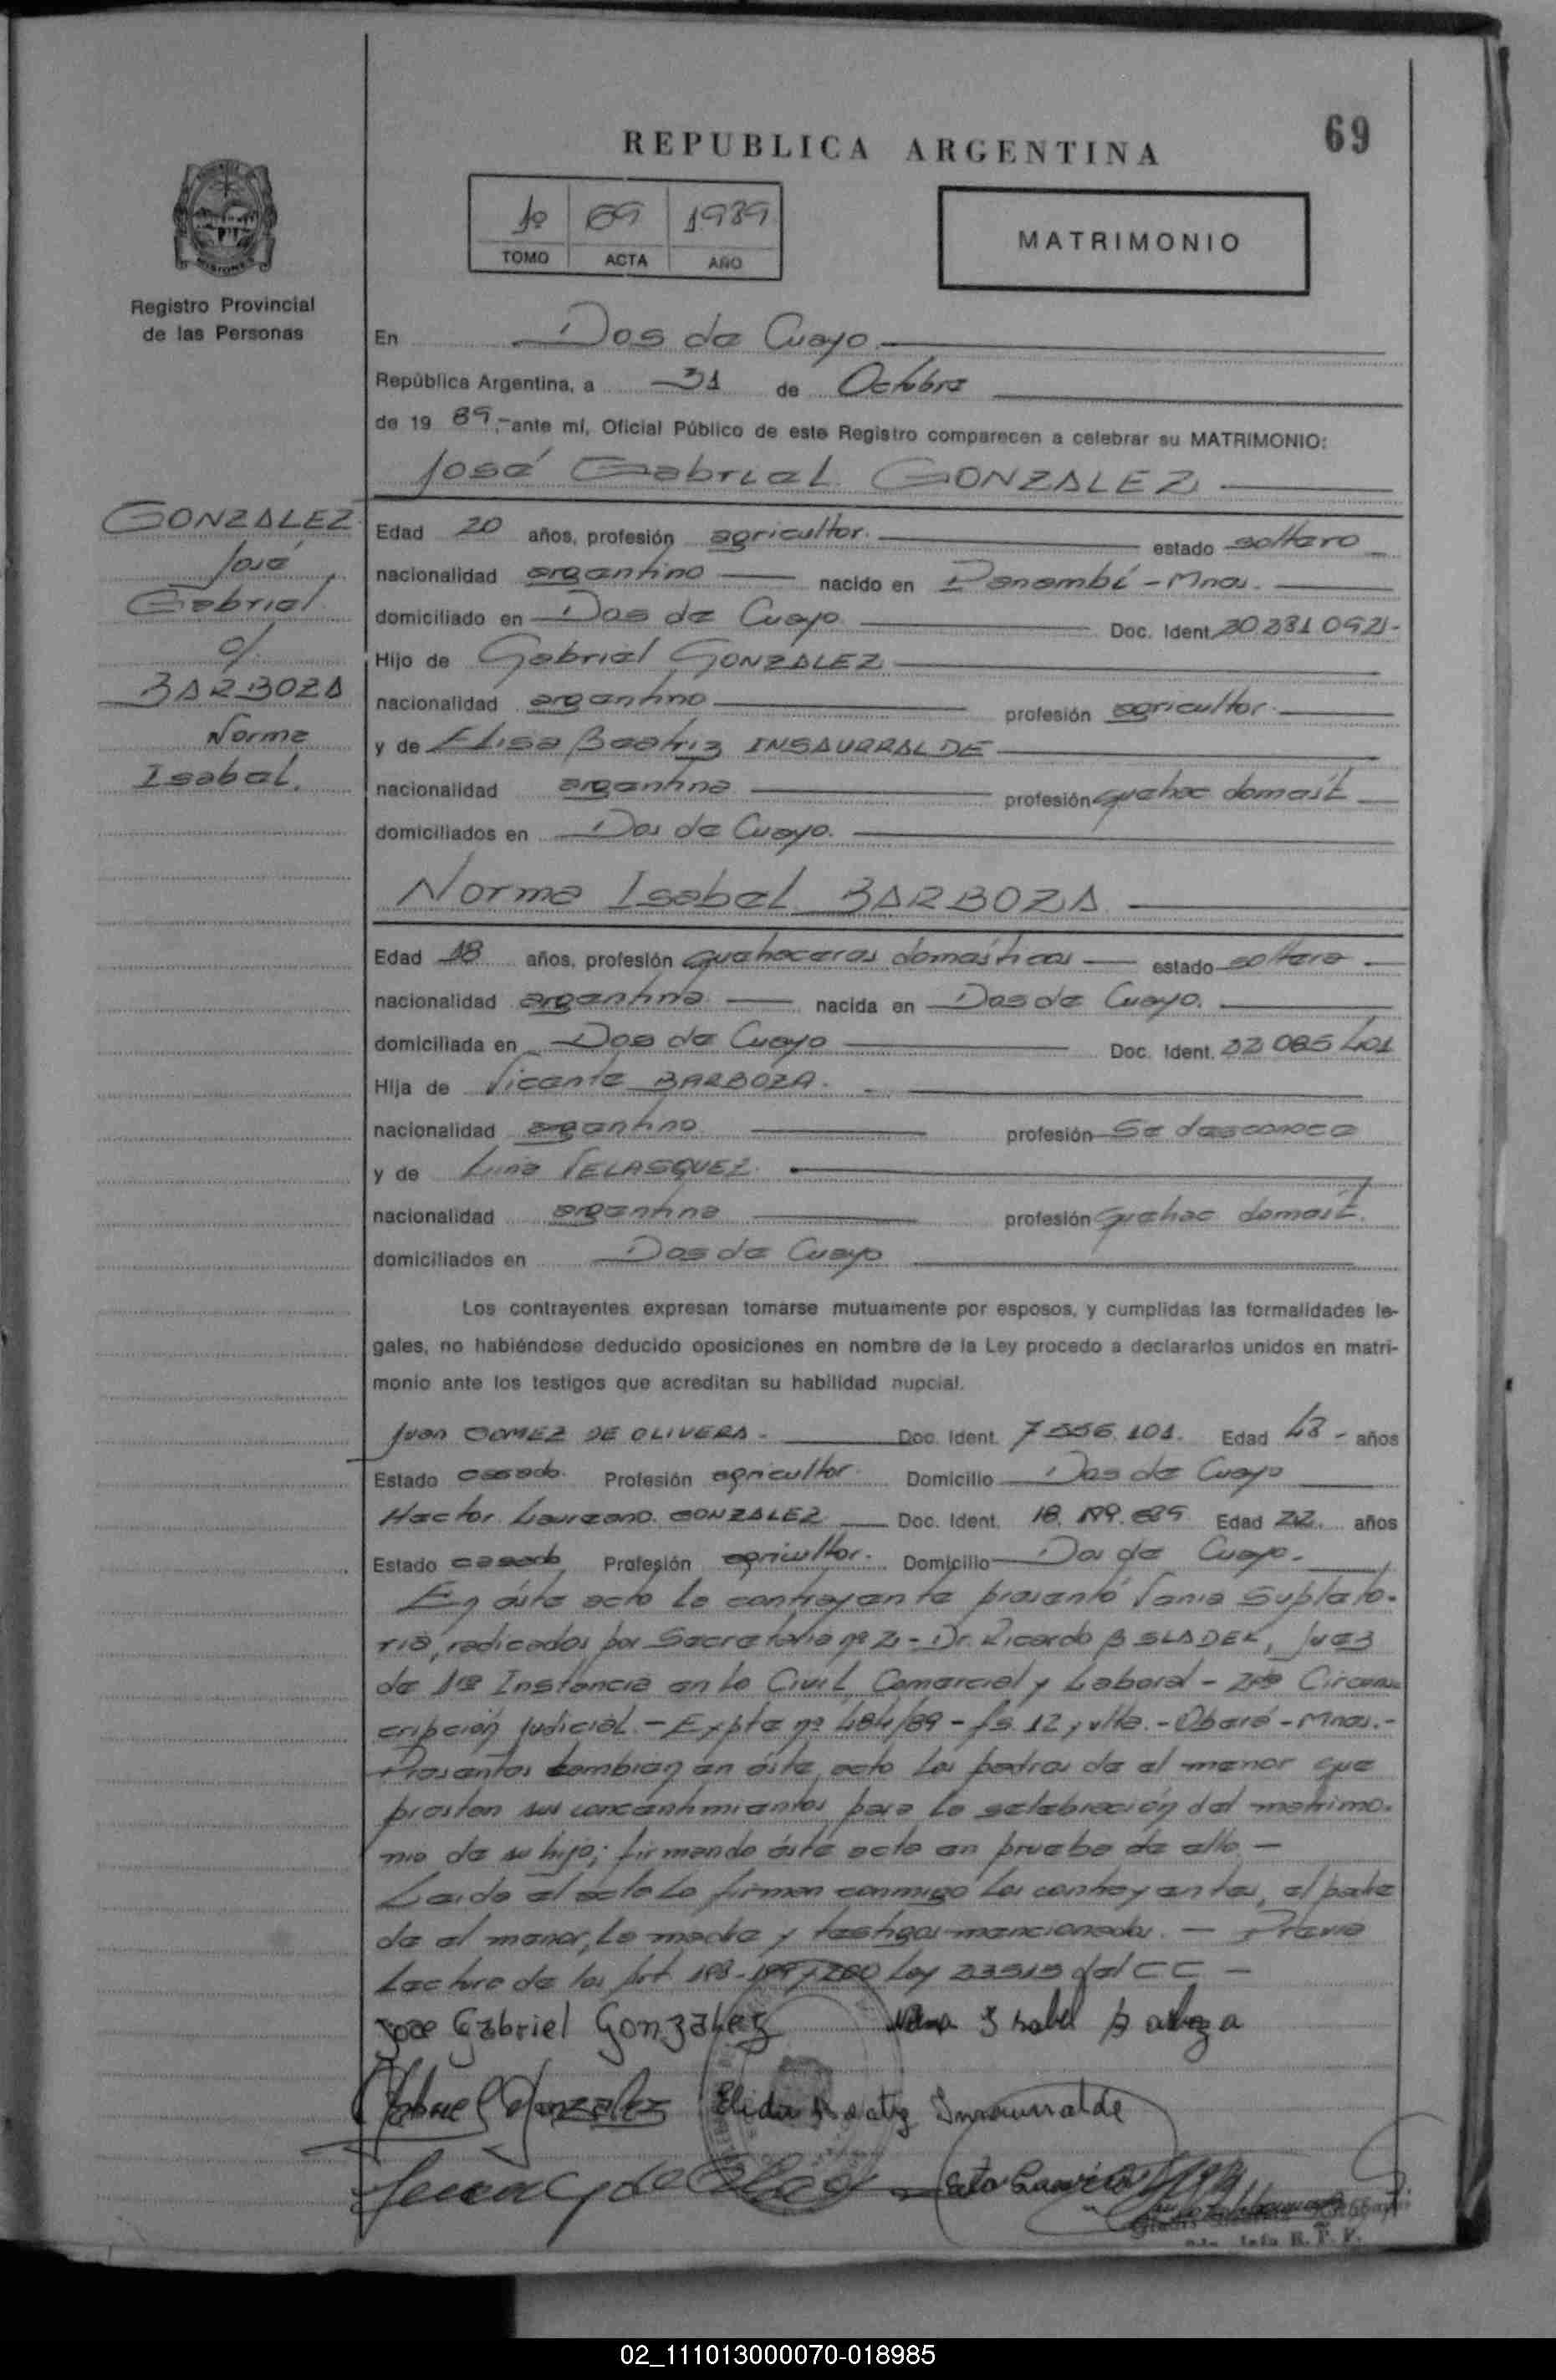 69
REPUBLICA ARGENTINA
1º 69 1989
TOMO ACTA AÑO
MATRIMONIO
MISIONES
Registro Provincial
de las Personas
En Dos de Mayo
República Argentina, a 31 de Octubre
de 19 89,- ante mí, Oficial Público de este Registro comparecen a celebrar su MATRIMONIO:
José Gabriel GONZALEZ
GONZALEZ
José
Gabriel
c/.
BARBOZA
Norma
Isabel.
Edad 20 años, profesión agricultor. estado soltero
nacionalidad argentino nacido en Panambí - Mnes.
domiciliado en Dos de Mayo Doc. Ident.
Hijo de Gabriel GONZALEZ
nacionalidad argentino profesión agricultor.
y de Elisa Beatriz INSAURRALDE
nacionalidad argentina profesión quehac domést
domiciliados en Dos de Mayo.
Norma Isabel BARBOZA
Edad 18 años, profesión quehaceres domésticos estado soltera
nacionalidad argentina nacida en Dos de Mayo.
domiciliada en Dos de Mayo Doc. Ident. 22 085 401
Hija de Vicente BARBOZA.
nacionalidad argentino profesión Se desconoce
y de VELASQUEZ.
nacionalidad argentina profesión quehac domést.
domiciliados en Dos de Mayo
Los contrayentes expresan tomarse mutuamente por esposos, y cumplidas las formalidades le-
gales, no habiéndose deducido oposiciones en nombre de la Ley procedo a declararlos unidos en matri-
monio ante los testigos que acreditan su habilidad nupcial.
Juan GOMEZ DE OLIVERA. Doc. Ident. 7 556.101. Edad 48 - años
Estado casado. Profesión agricultor. Domicilio Dos de Mayo
Hector Laureano GONZALEZ Doc. Ident. Edad 22. años
Estado casado Profesión agricultor. Domicilio Dos de Mayo.
En éste acto la contrayente presentó Venia Supleto-
ria, radicados por Secretaria nº 2 - Dr. Ricardo B SLADEK, Juez
de 1ra Instancia en lo Civil, Comercial y Laboral - 2da Circuns-
cripción Judicial. - Expte nº 484/89 - fs. 12 y vlta. - Oberá - Mnes. -
Presentes tambien en éste acto los padres de el menor que
prestan sus concentimientos para la selebración del matrimo-
nio de su hijo; firmando éste acto en prueba de ello. -
Leído el acta la firman conmigo los contrayentes, el padre
de el menor, la madre y testigos mencionados. - Previa
Lectura de los Art. 198-199 y 200 Ley 23515 del CC -
Jose Gabriel Gonzalez Norma Isabel Barboza
Gabriel Gonzalez Elida Beatriz Insaurralde
R. P. P.
02_111013000070-018985